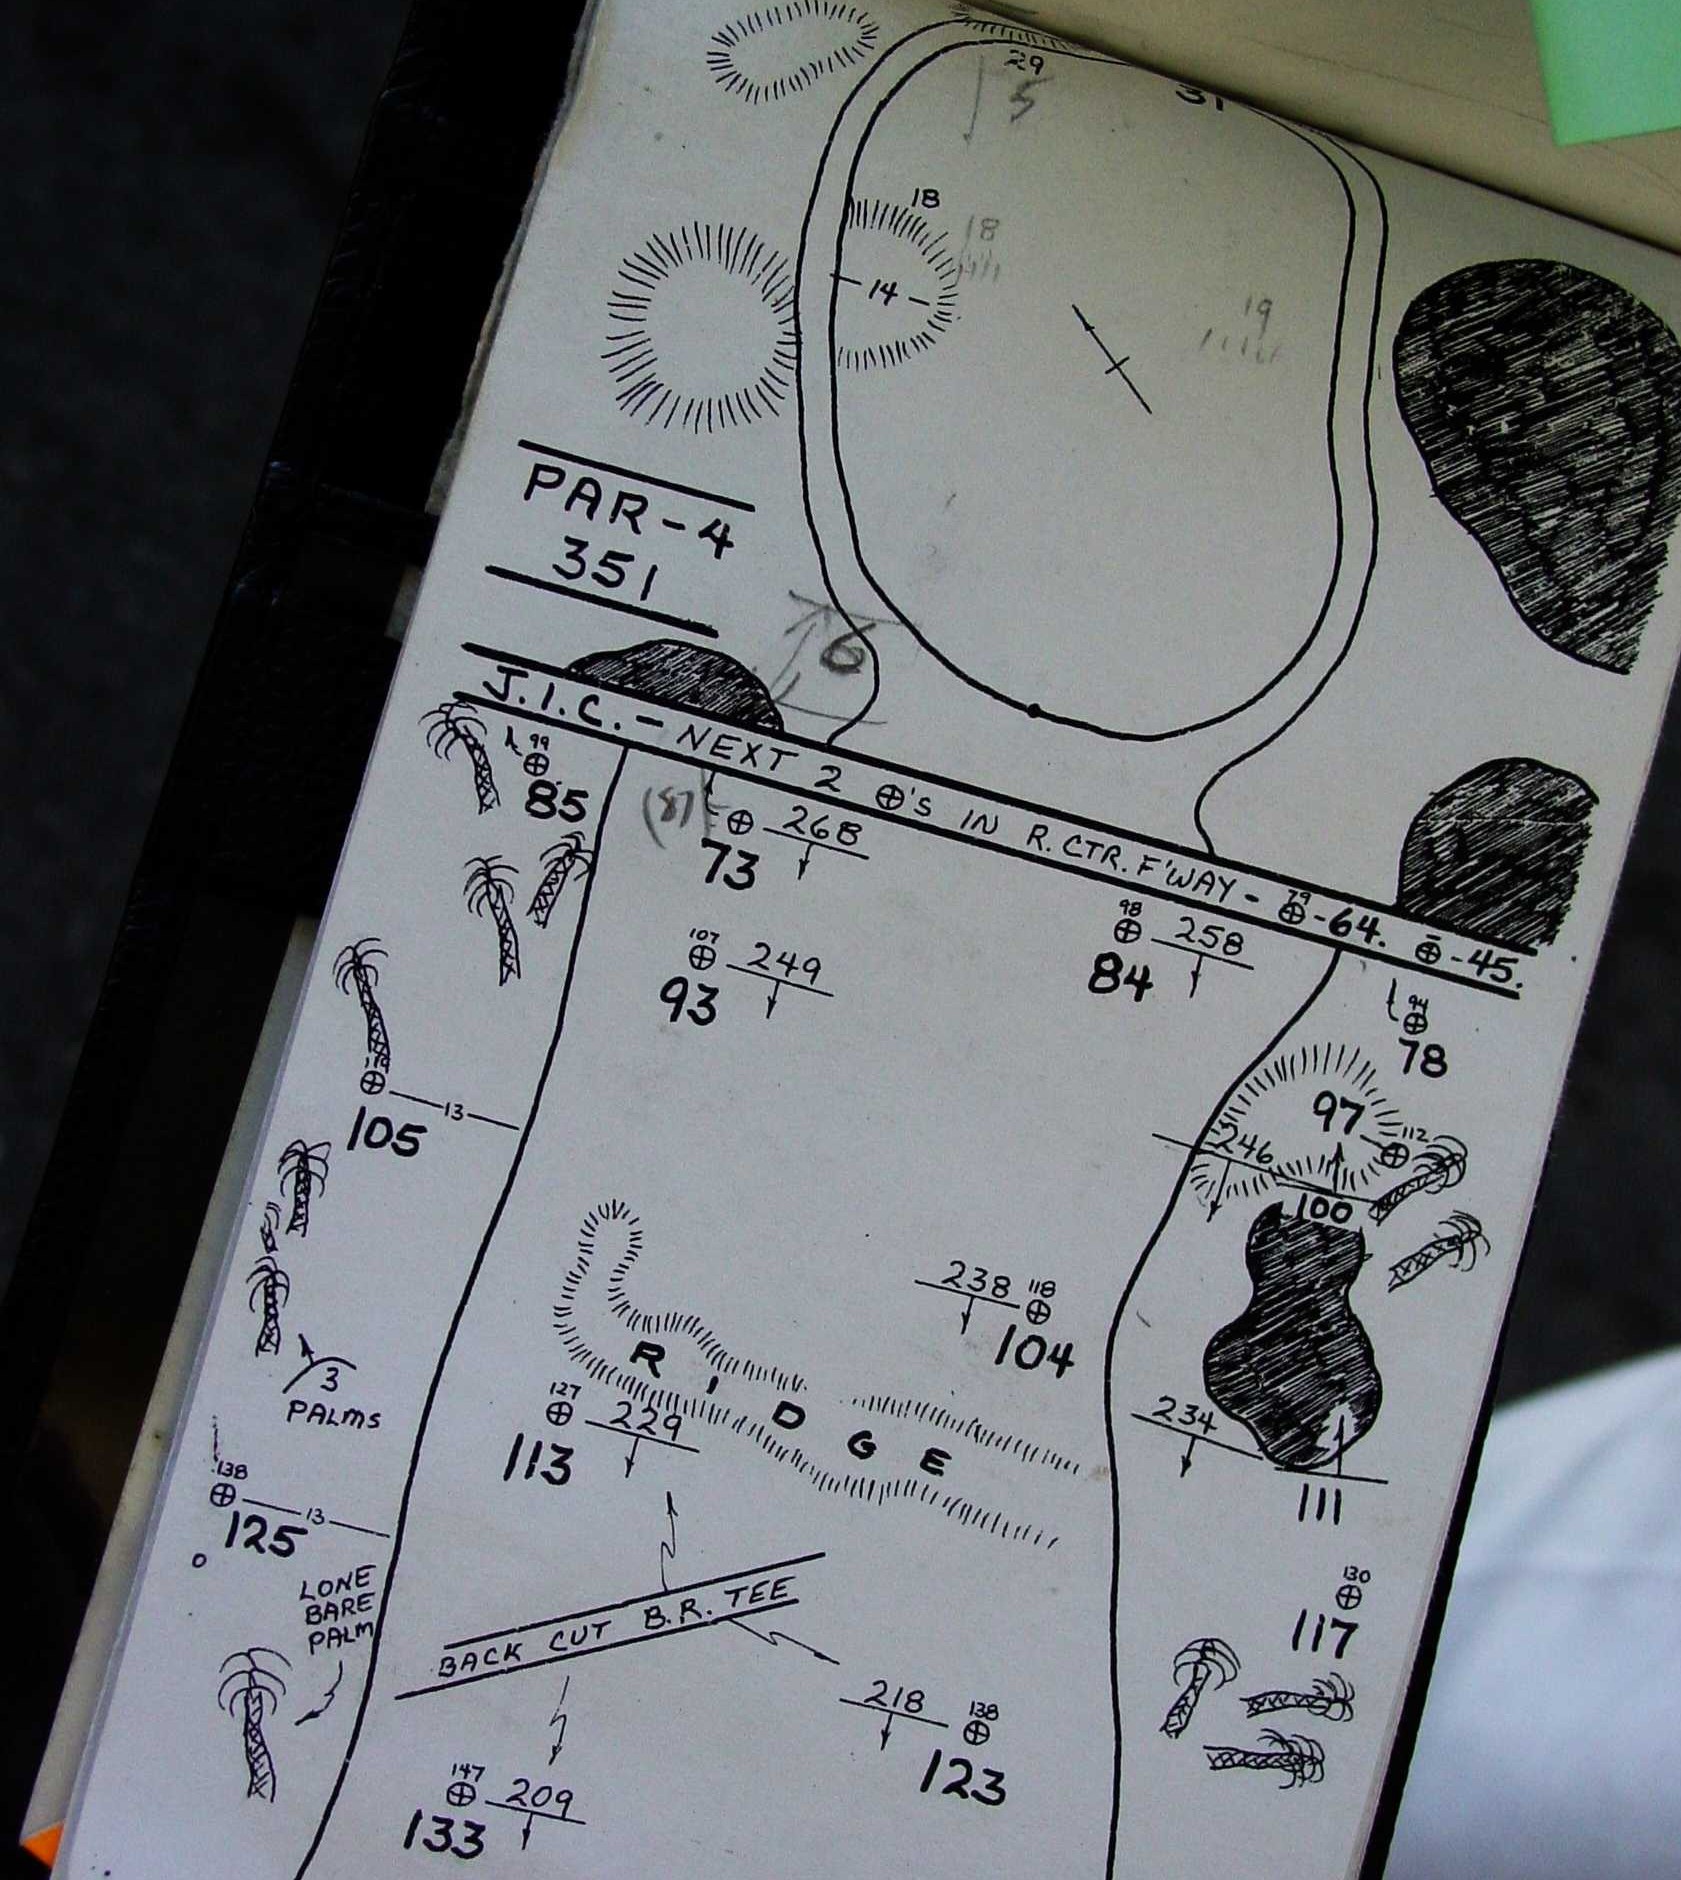 29
5
31
18
18
- 14 -
19
PAR-4
351
6
J.I.C. - NEXT 2 ⊕'S IN R. CTR. F'WAY - 79 ⊕-64. ⊕-45.
99
85
(87)
268
73
107
249
93
98
258
84
94
78
97
112
246
100
13
105
238
118
104
RIDGE
3
PALMS
127
229
113
234
111
138
13
125
LONE
BARE
PALM
130
117
BACK CUT B.R. TEE
218
138
123
147
209
133